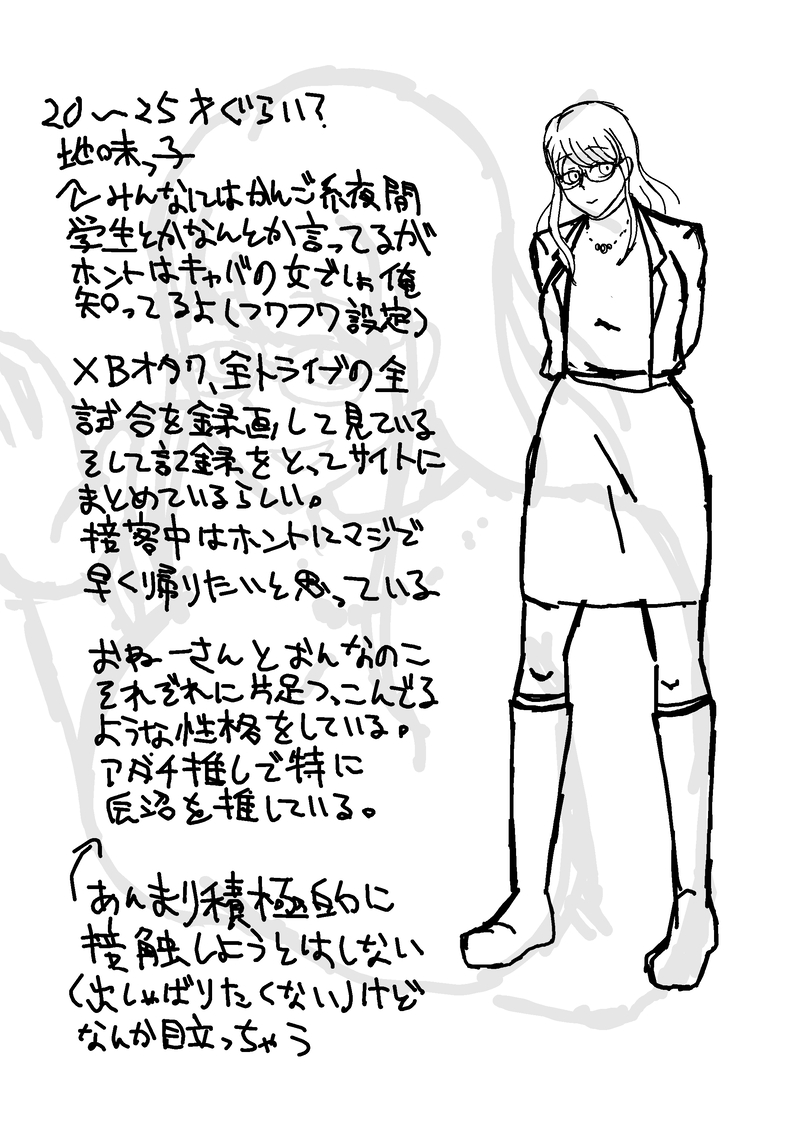 20〜25才ぐらい?
地味っ子
↑みんなにはかんご系夜間
学生とかなんとか言ってるが
ホントはキャバの女でしょ俺
知ってるよ(フワフワ設定)
XBオタク、全トライブの全
試合を録画して見ている
そして記録をとってサイトに
まとめているらしい。
接客中はホントにマジで
早く帰りたいと思っている
おねーさんとおんなのこ
それぞれに片足つっこんでる
ような性格をしている。
アダチ推しで特に
辰沼を推している。
↑あんまり積極的に
接触しようとはしない
(出しゃばりたくない)けど
なんか目立っちゃう